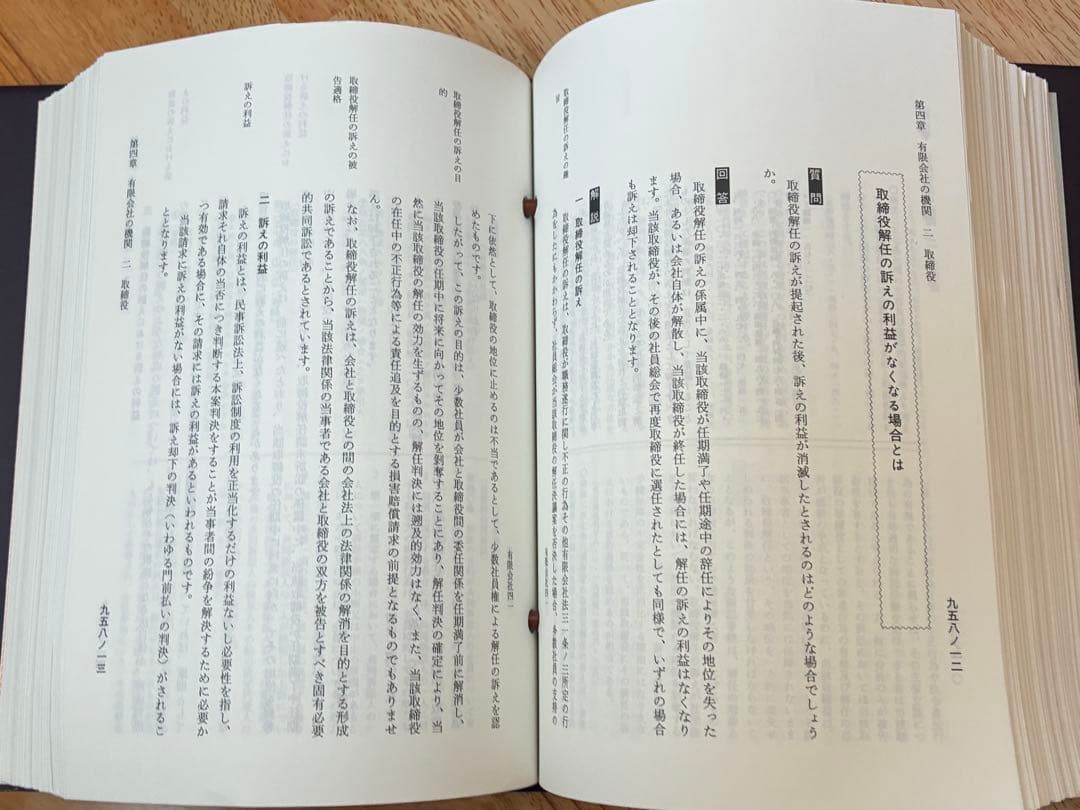 第四章 有限会社の機関 二 取締役
九五八ノ一二
取締役解任の訴えの利益がなくなる場合とは
質問
取締役解任の訴えが提起された後、訴えの利益が消滅したとされるのはどのような場合でしょう
か。
回答
取締役解任の訴えの係属中に、当該取締役が任期満了や任期途中の辞任によりその地位を失った
場合、あるいは会社自体が解散し、当該取締役が終任した場合には、解任の訴えの利益はなくなり
ます。当該取締役が、その後の社員総会で再度取締役に選任されたとしても同様で、いずれの場合
も訴えは却下されることとなります。
解説
一 取締役解任の訴え
取締役解任の訴えの
取締役解任の訴えは、取締役が職務遂行に関し不正の行為その他有限会社法三一条ノ三所定の行
為をしたにもかかわらず、社員総会が当該取締役の解任決議案を否決した場合、多数社員の支持の
有限会社四一
下に依然として、取締役の地位に止めるのは不当であるとして、少数社員権による解任の訴えを認
めたものです。
取締役解任の訴えの目
的
したがって、この訴えの目的は、少数社員が会社と取締役間の委任関係を任期満了前に解消し、
当該取締役の任期中に将来に向かってその地位を剝奪することにあり、解任判決の確定により、当
然に当該取締役の解任の効力を生ずるものの、解任判決には遡及的効力はなく、また、当該取締役
の在任中の不正行為等による責任追及を目的とする損害賠償請求の前提となるものでもありませ
ん。
取締役解任の訴えの被
告適格
なお、取締役解任の訴えは、会社と取締役との間の会社法上の法律関係の解消を目的とする形成
の訴えであることから、当該法律関係の当事者である会社と取締役の双方を被告とすべき固有必要
的共同訴訟であるとされています。
二 訴えの利益
訴えの利益
訴えの利益とは、民事訴訟法上、訴訟制度の利用を正当化するだけの利益ないし必要性を指し、
請求それ自体の当否につき判断する本案判決をすることが当事者間の紛争を解決するために必要か
つ有効である場合に、その請求には訴えの利益があるといわれるものです。
当該請求に訴えの利益がない場合には、訴え却下の判決（いわゆる門前払いの判決）がされるこ
ととなります。
第四章 有限会社の機関 二 取締役
九五八ノ一三